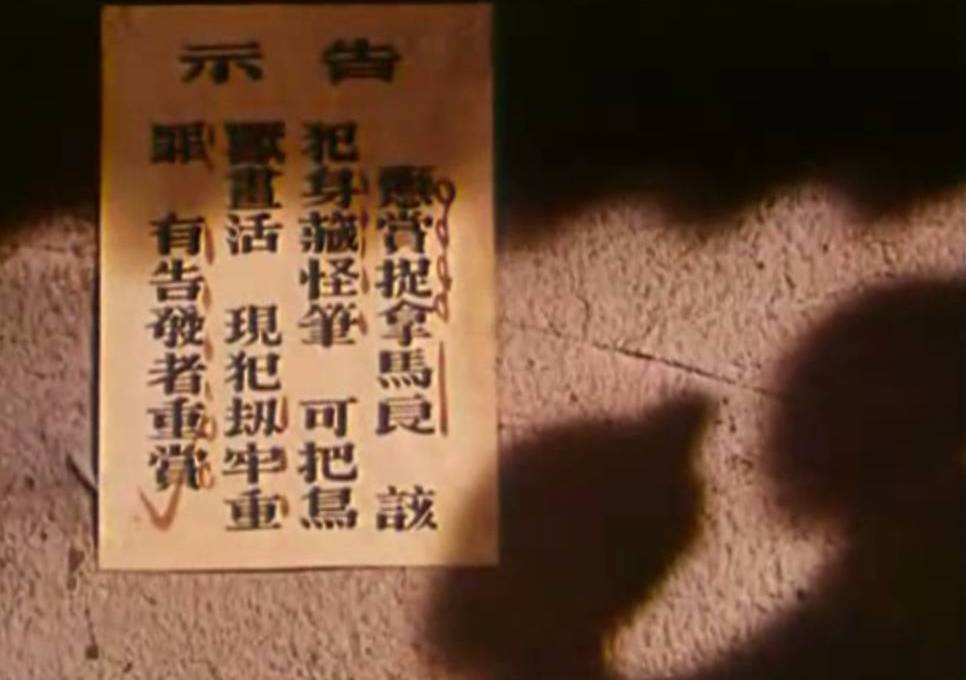 告示
懸賞捉拿馬良 該
犯身藏怪筆 可把鳥
獸畫活 現犯刼牢重
罪 有告發者重賞